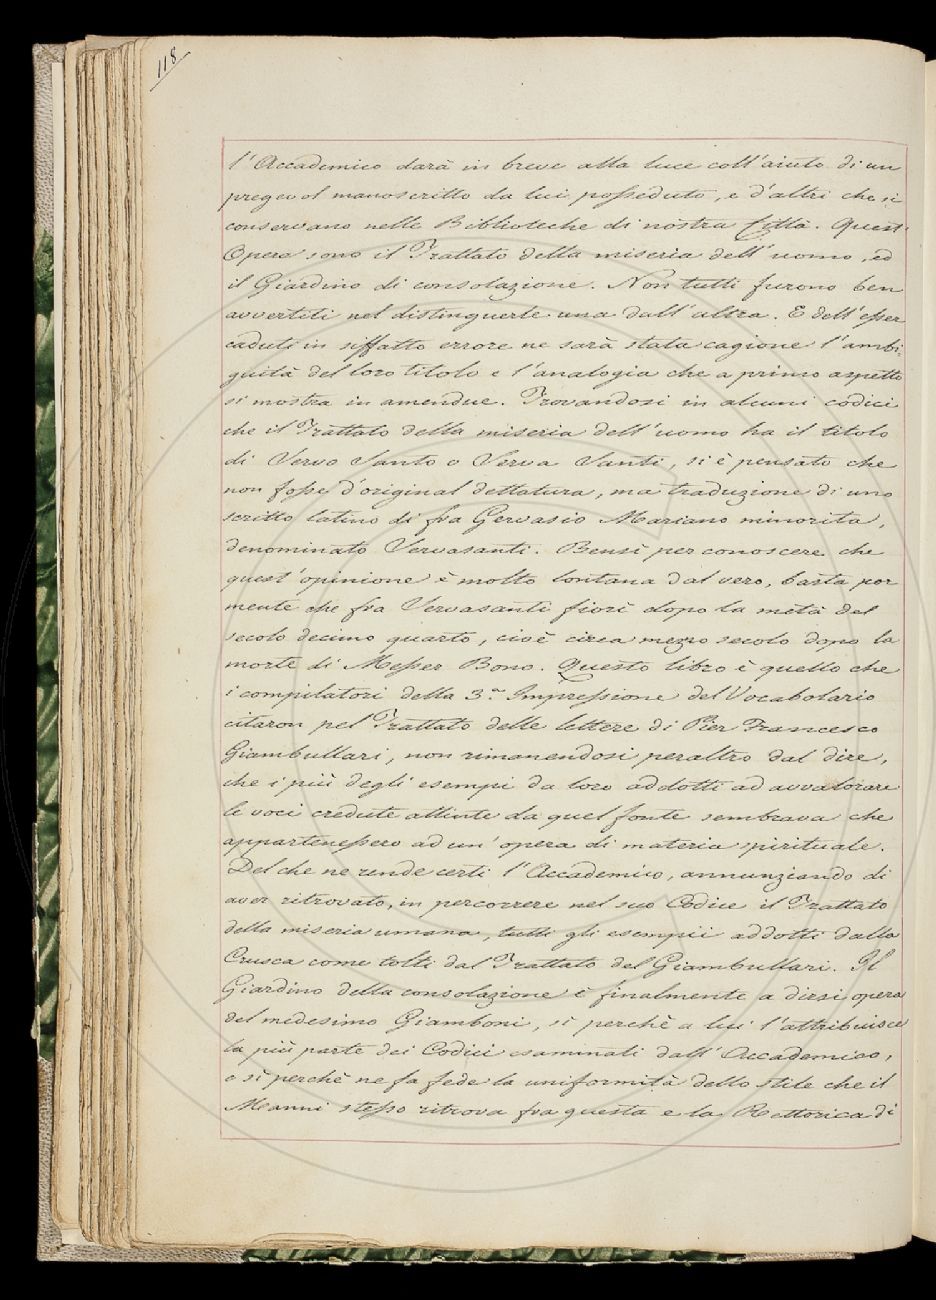 118
l'Accademico darà in breve alla luce coll'aiuto di un
pregevol manoscritto da lui posseduto, e d'altri che si
conservano nelle Biblioteche di nostra Città. Quest'
Opera sono il Trattato della miseria dell'uomo, ed
il Giardino di consolazione. Non tutti furono ben
avvertiti nel distinguerle una dall'altra. E dell'esser
caduti in siffatto errore ne sarà stata cagione l'ambi=
guità del loro titolo e l'analogia che a primo aspetto
si mostra in amendue. Trovandosi in alcuni codici
che il Trattato della miseria dell'uomo ha il titolo
di Servo Santo o Serva Santi, si è pensato che
non fosse d'original dettatura, ma traduzione di uno
scritto latino di fra Gervasio Marsano minorita,
denominato Servasanti. Bensì per conoscere che
quest'opinione è molto lontana dal vero, basta por
mente che fra Servasanti fiorì dopo la metà del
secolo decimo quarto, cioè circa mezzo secolo dopo la
morte di Messer Bono. Questo libro è quello che
i compilatori della 3.ª Impressione del Vocabolario
citaron pel Trattato delle lettere di Pier Francesco
Giambullari, non rimanendosi peraltro dal dire,
che i più degli esempi da loro addotti ad avvalorare
le voci credute attinte da quel fonte sembrava che
appartenessero ad un'opera di materia spirituale.
Del che ne rende certi l'Accademico, annunziando di
aver ritrovato, in percorrere nel suo Codice il Trattato
della miseria umana, tutti gli esempii addotti dalla
Crusca come tolti dal Trattato del Giambullari. Il
Giardino della consolazione è finalmente a dirsi opera
del medesimo Giamboni, sì perchè a lui l'attribuisce
la più parte dei Codici esaminati dall'Accademico,
e sì perchè ne fa fede la uniformità dello stile che il
Manni stesso ritrova fra questa e la Rettorica di